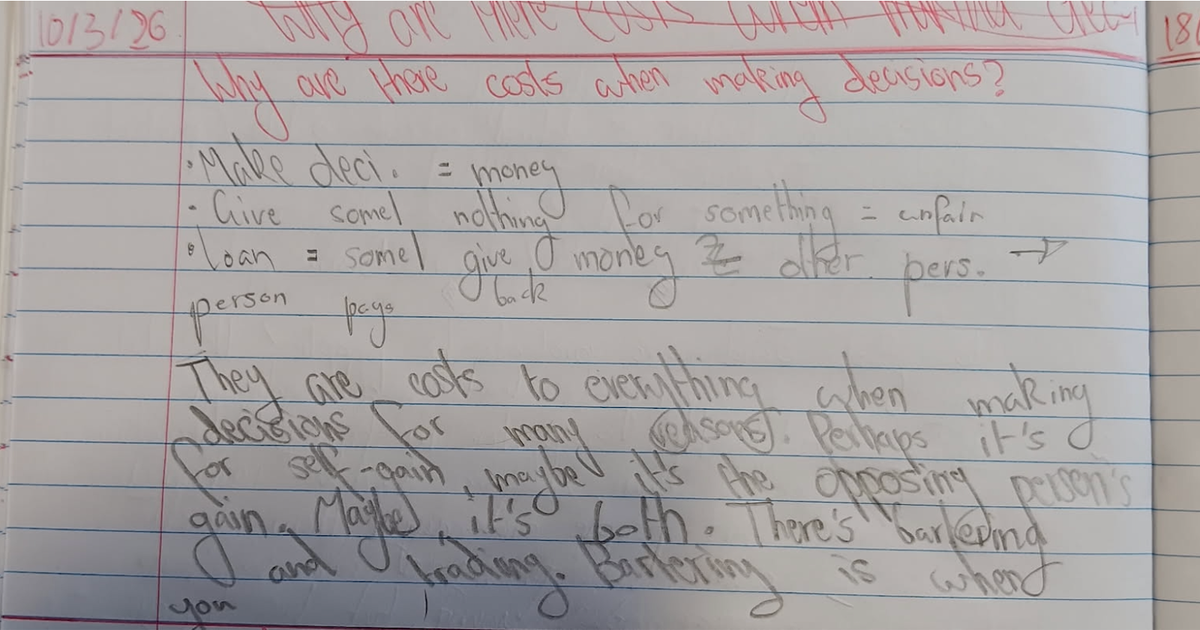 10/3/26 Why are there costs when making deci
18
Why are there costs when making decisions?
· Make deci. = money
· Give some1 nothing for something = unfair
· loan = some1 give money other pers. →
person pays back
They are costs to everything when making
decisions for many reasons. Perhaps it's
for self-gain, maybe it's the opposing person's
gain. Maybe, it's both. There's bartering
and trading. Bartering is when
you